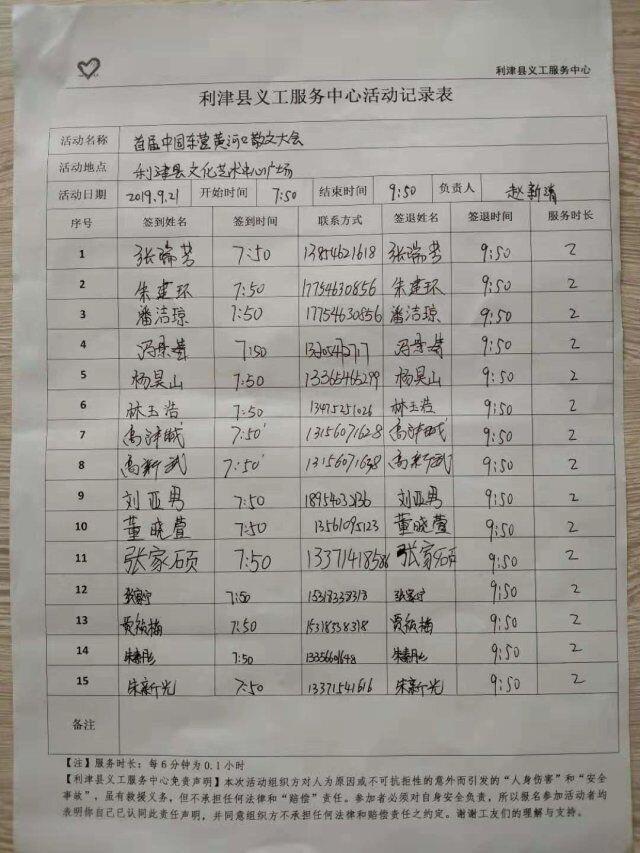 利津县义工服务中心
利津县义工服务中心活动记录表
活动名称 首届中国东营黄河口散文大会
活动地点 利津县文化艺术中心广场
活动日期 2019.9.21 开始时间 7:50 结束时间 9:50 负责人 赵新清
序号 签到姓名 签到时间 联系方式 签退姓名 签退时间 服务时长
1 张瑞芳 7:50 13854621618 张瑞芳 9:50 2
2 朱建环 7:50 17754630856 朱建环 9:50 2
3 潘洁琼 7:50 17754630856 潘洁琼 9:50 2
4 7:50 9:50 2
5 杨昊山 7:50 13365465299 杨昊山 9:50 2
6 林玉浩 7:50 13475251026 林玉浩 9:50 2
7 7:50 13156071628 9:50 2
8 高新武 7:50 高新武 9:50 2
9 刘亚男 7:50 刘亚男 9:50 2
10 董晓萱 7:50 13561095123 董晓萱 9:50 2
11 张家硕 7:50 13371418586 张家硕 9:50 2
12 7:50 15318338318 9:50 2
13 7:50 15318338318 9:50 2
14 7:50 9:50 2
15 朱新光 7:50 13371541616 朱新光 9:50 2
备注
【注】服务时长：每6分钟为0.1小时
【利津县义工服务中心免责声明】本次活动组织方对人为原因或不可抗拒性的意外而引发的“人身伤害”和“安全
事故”，虽有救援义务，但不承担任何法律和“赔偿”责任。参加者必须对自身安全负责，所以报名参加活动者均
表明你自己已认同此责任声明，并同意组织方不承担任何法律和赔偿责任之约定。谢谢工友们的理解与支持。